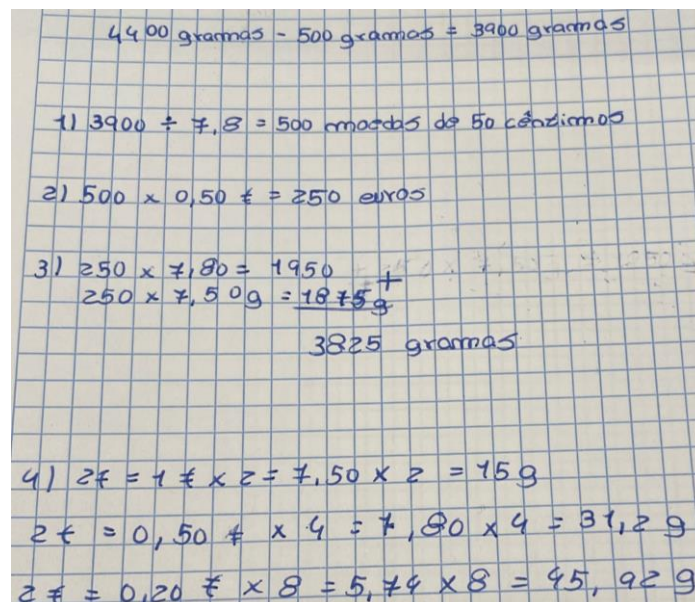 4400 gramas - 500 gramas = 3900 gramas
1) 3900 ÷ 7,8 = 500 moedas de 50 cêntimos
2) 500 x 0,50 € = 250 euros
3) 250 x 7,80 = 1950 +
250 x 7,50g = 1875g
3825 gramas
4) 2€ = 1 € x 2 = 7,50 x 2 = 15g
2€ = 0,50 € x 4 = 7,80 x 4 = 31,2 g
2€ = 0,20 € x 8 = 5,74 x 8 = 45,92 g